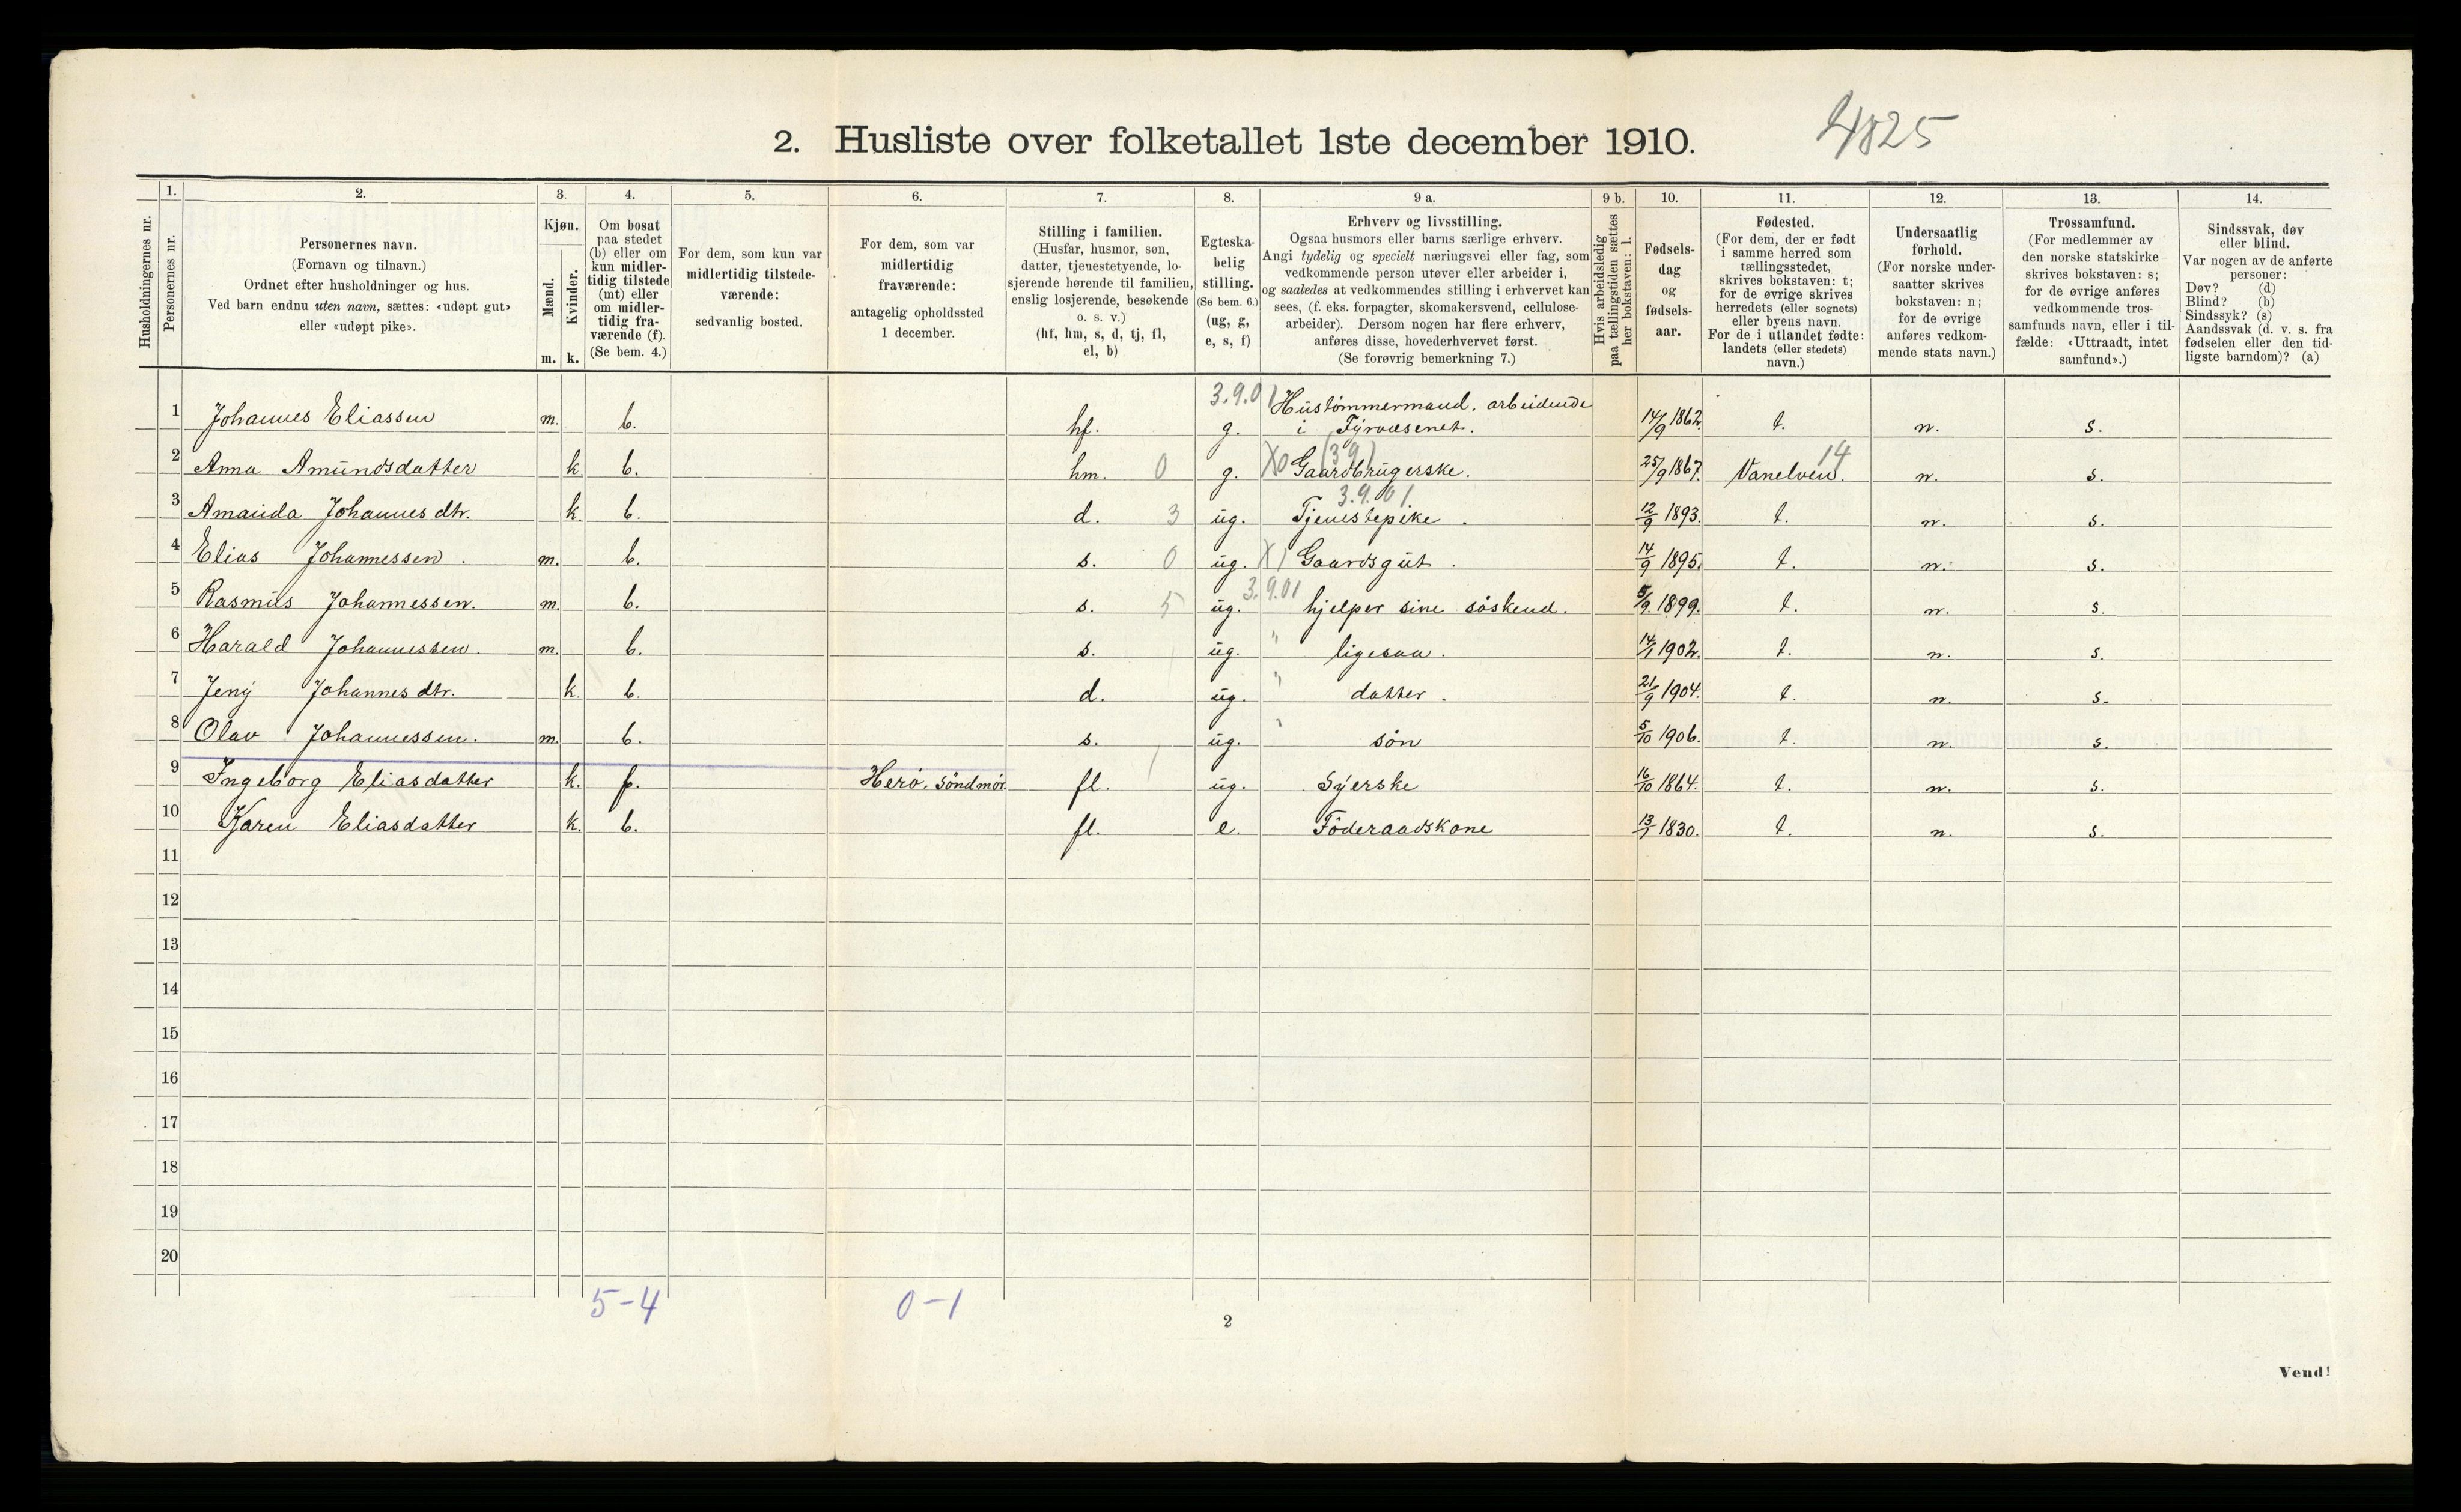 4825
2. Husliste over folketallet 1ste december 1910.
Husholdningernes nr.
1.
Personernes nr.
2.
Personernes navn.
(Fornavn og tilnavn.)
Ordnet efter husholdninger og hus.
Ved barn endnu uten navn, sættes: «udøpt gut»
eller «udøpt pike».
3.
Kjøn.
Mænd.
Kvinder.
m. k.
4.
Om bosat
paa stedet
(b) eller om
kun midler-
tidig tilstede
(mt) eller
om midler-
tidig fra-
værende (f).
(Se bem. 4.)
5.
For dem, som kun var
midlertidig tilstede-
værende:
sedvanlig bosted.
6.
For dem, som var
midlertidig
fraværende:
antagelig opholdssted
1 december.
7.
Stilling i familien.
(Husfar, husmor, søn,
datter, tjenestetyende, lo-
sjerende hørende til familien,
enslig losjerende, besøkende
o. s. v.)
(hf, hm, s, d, tj, fl,
el, b)
8.
Egteska-
belig
stilling.
(Se bem. 6.)
(ug, g,
e, s, f)
9 a.
Erhverv og livsstilling.
Ogsaa husmors eller barns særlige erhverv.
Angi tydelig og specielt næringsvei eller fag, som
vedkommende person utøver eller arbeider i,
og saaledes at vedkommendes stilling i erhvervet kan
sees, (f. eks. forpagter, skomakersvend, cellulose-
arbeider). Dersom nogen har flere erhverv,
anføres disse, hovederhvervet først.
(Se forøvrig bemerkning 7.)
9 b.
Hvis arbeidsledig
paa tællingstiden sættes
her bokstaven: l.
10.
Fødsels-
dag
og
fødsels-
aar.
11.
Fødested.
(For dem, der er født
i samme herred som
tællingsstedet,
skrives bokstaven: t;
for de øvrige skrives
herredets (eller sognets)
eller byens navn.
For de i utlandet fødte:
landets (eller stedets)
navn.)
12.
Undersaatlig
forhold.
(For norske under-
saatter skrives
bokstaven: n;
for de øvrige
anføres vedkom-
mende stats navn.)
13.
Trossamfund.
(For medlemmer av
den norske statskirke
skrives bokstaven: s;
for de øvrige anføres
vedkommende tros-
samfunds navn, eller i til-
fælde: «Uttraadt, intet
samfund».)
14.
Sindssvak, døv
eller blind.
Var nogen av de anførte
personer:
Døv? (d)
Blind? (b)
Sindssyk? (s)
Aandssvak (d. v. s. fra
fødselen eller den tid-
ligste barndom)? (a)
3.9.01 Hustömmermand, arbeidende
1 Johannes Eliassen m. b. hf. g. i Fyrvæsenet. 14/9 1862. t. n. s.
(39) 14
2 Anna Amundsdatter k b. hm. 0 g. X0 Gaardbrugerske. 25/9 1867. Vanelven. n. s.
3.9.01.
3 Amanda Johannesdtr. k. b. d. 3 ug. Tjenestepike. 12/9 1893. t. n. s.
4 Elias Johannessen. m. b. s. 0 ug. X1 Gaardsgut. 14/9 1895. t. n. s.
3.9.01
5 Rasmus Johannessen. m. b. s. 5 ug. hjelper sine söskend. 5/9. 1899. t. n. s.
6 Harald Johannessen. m. b. s. ug. " ligesaa. 14/1 1902. t. n. s.
7 Jeny Johannesdtr. k. b. d. ug. " datter. 21/9 1904. t. n. s.
8 Olav Johannessen. m. b. s. ug. " sön 5/10 1906. t. n. s.
9 Ingeborg Eliasdatter k. f. Herö. Söndmör. fl. ug. Syerske 16/10 1864. t. n. s.
10 Karen Eliasdatter k. b. fl. e. Föderaadskone 13/1 1830. t. n. s.
11
12
13
14
15
16
17
18
19
20
5-4 0-1
2
Vend!